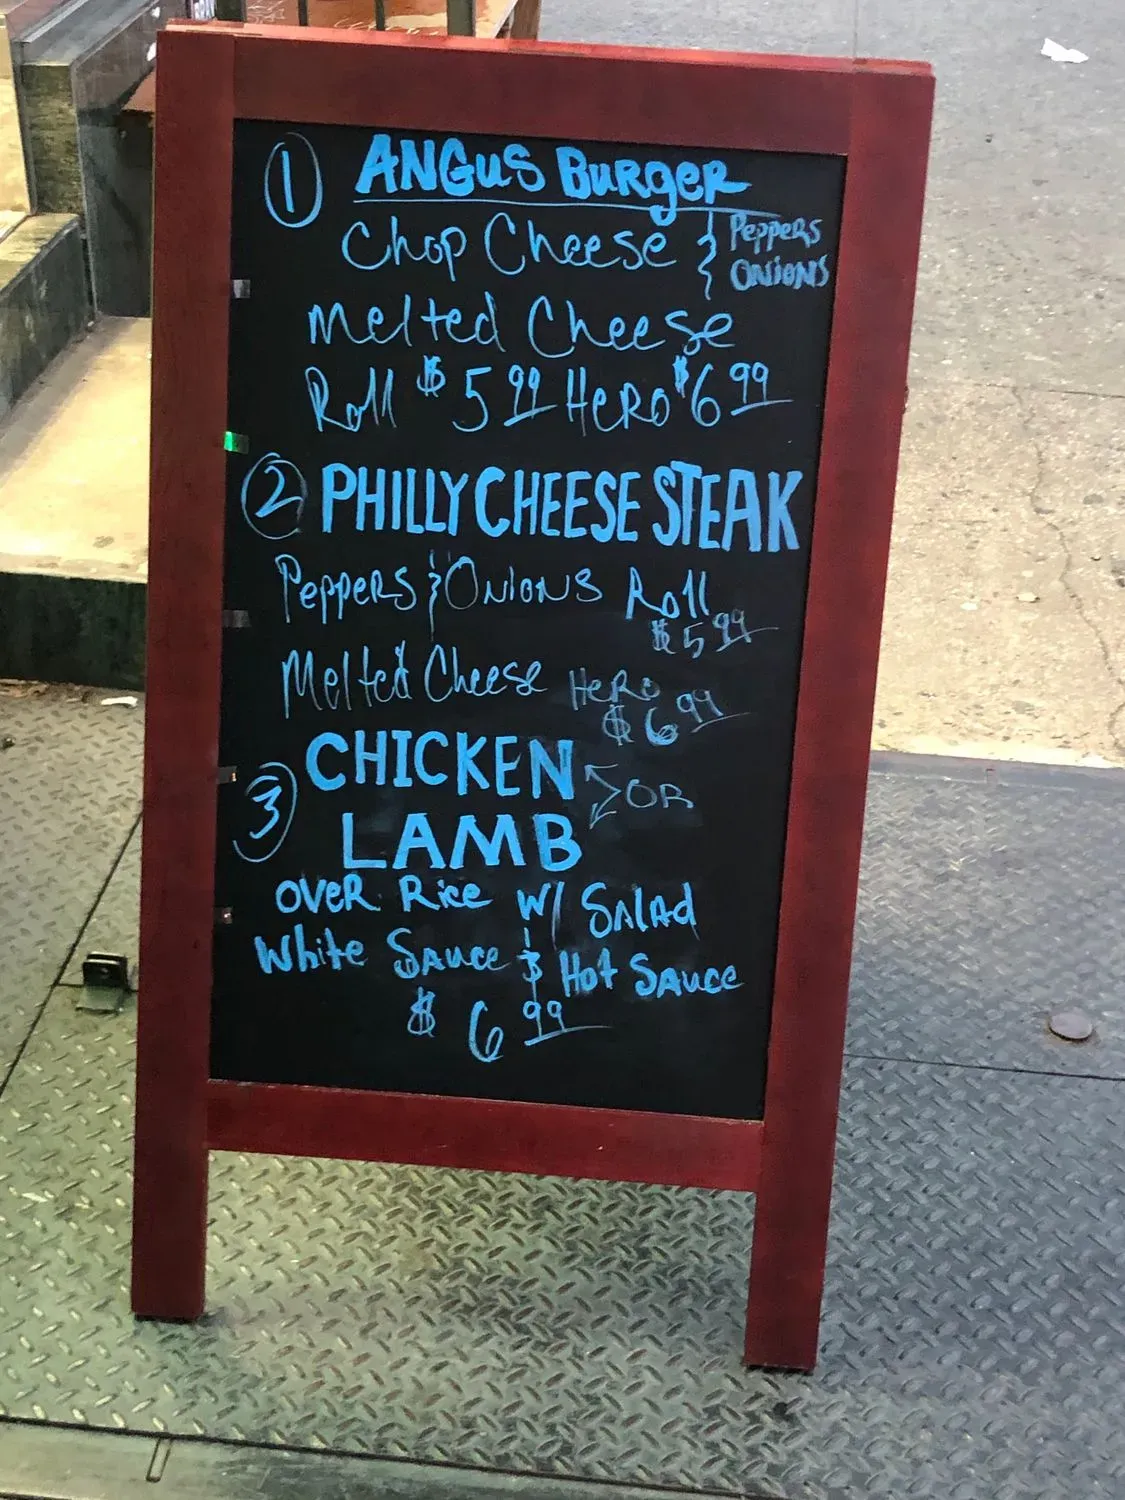 1 ANGUS BURGER
Chop Cheese & Peppers
ONIONS
Melted Cheese
Roll $5.99 HERO $6.99
2 PHILLY CHEESE STEAK
Peppers & ONIONS Roll
$5.99
Melted Cheese HERO
$6.99
3 CHICKEN
OR
LAMB
OVER Rice W/ SALAd
White SAuce & Hot SAuce
$6.99